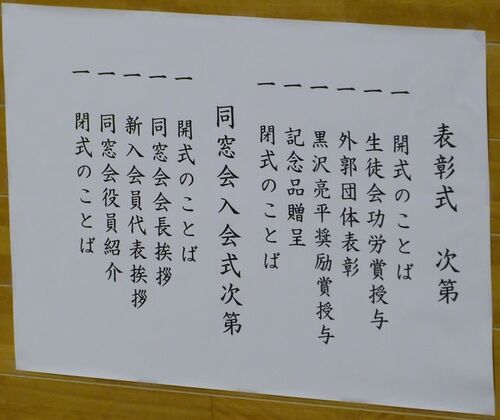 表彰式　次第
一　開式のことば
一　生徒会功労賞授与
一　外郭団体表彰
一　黒沢亮平奨励賞授与
一　記念品贈呈
一　閉式のことば
同窓会入会式次第
一　開式のことば
一　同窓会会長挨拶
一　新入会員代表挨拶
一　同窓会役員紹介
一　閉式のことば